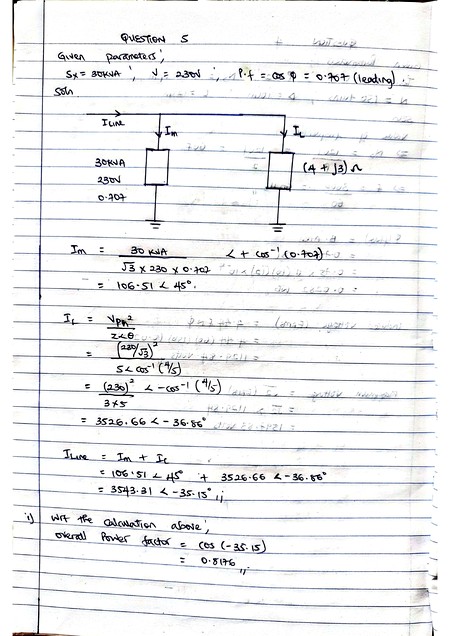 QUESTION 5
Given parameters;
Sx = 30KVA ; V = 230V ; P.f = cos φ = 0.707 (leading).
Soln
ILine Im IL
30KVA
230V
0.707
(4 + j3) Ω
Im = 30 KVA / √3 × 230 × 0.707 ∠ + cos⁻¹ (0.707)
= 106.51 ∠ 45°.
IL = Vph² / Z∠θ
= (230/√3)² / 5∠cos⁻¹(4/5)
= (230)² / 3×5 ∠ -cos⁻¹ (4/5)
= 3526.66 ∠ -36.86°
ILine = Im + IL
= 106.51 ∠ 45° + 3526.66 ∠ -36.86°
= 3543.31 ∠ -35.15° ,,
i) wrt the calculation above;
overall Power factor = cos (-35.15)
= 0.8176 ,,